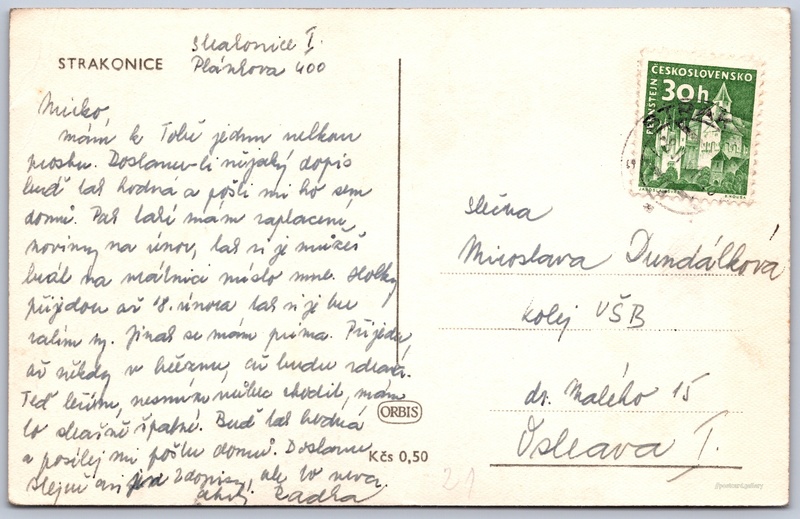 STRAKONICE
Strakonice I.
Plánkova 400
Mirko,
mám k Tobě jednu velkou
prosbu. Dostanu-li nějaký dopis
buď tak hodná a pošli mi ho sem
domů. Pak také mám zaplacené
noviny na únor, tak si je můžeš
brát na vrátnici místo mne. Holky
přijedou až 18. února tak si je ber
zatím ty. Jinak se mám prima. Přijedu
až někdy v březnu, až budu zdravá.
Teď ležím, nesmím vůbec chodit, mám
to strašně špatné. Buď tak hodná
a posílej mi poštu domů. Dostanu
stejně asi 2 dopisy, ale to nevá.
Ahoj Radka
ORBIS
Kčs 0,50
21
ČESKOSLOVENSKO
30h
PERNŠTEJN
slečna
Miroslava Dundálková
kolej VŠB
dr. Malého 15
Ostrava I.